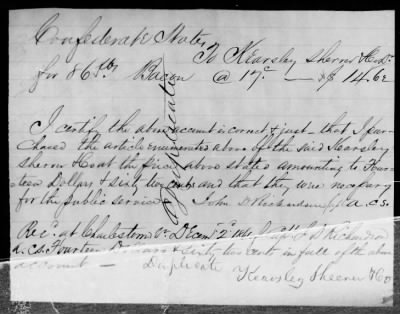 Confederate States
To Kearsley Sheerer & Co. Dr.
for 86 lbs Bacon @ 17c — $ 14.62
I certify the above account is correct & just — that I pur-
chased the article enumerated above of the said Kearsley
Sheerer & Co at the price above stated amounting to Four-
teen Dollars & sixty two cents and that they were necessary
for the public service John D Richardson Capt a.c.s.
Rec'd at Charlestown Va Decem' 2d 1861 of Capt J D Richardson
a.c.s. Fourteen Dollars & sixty two cents in full of the above
account — Duplicate
Kearsley Sheerer & Co
Duplicate